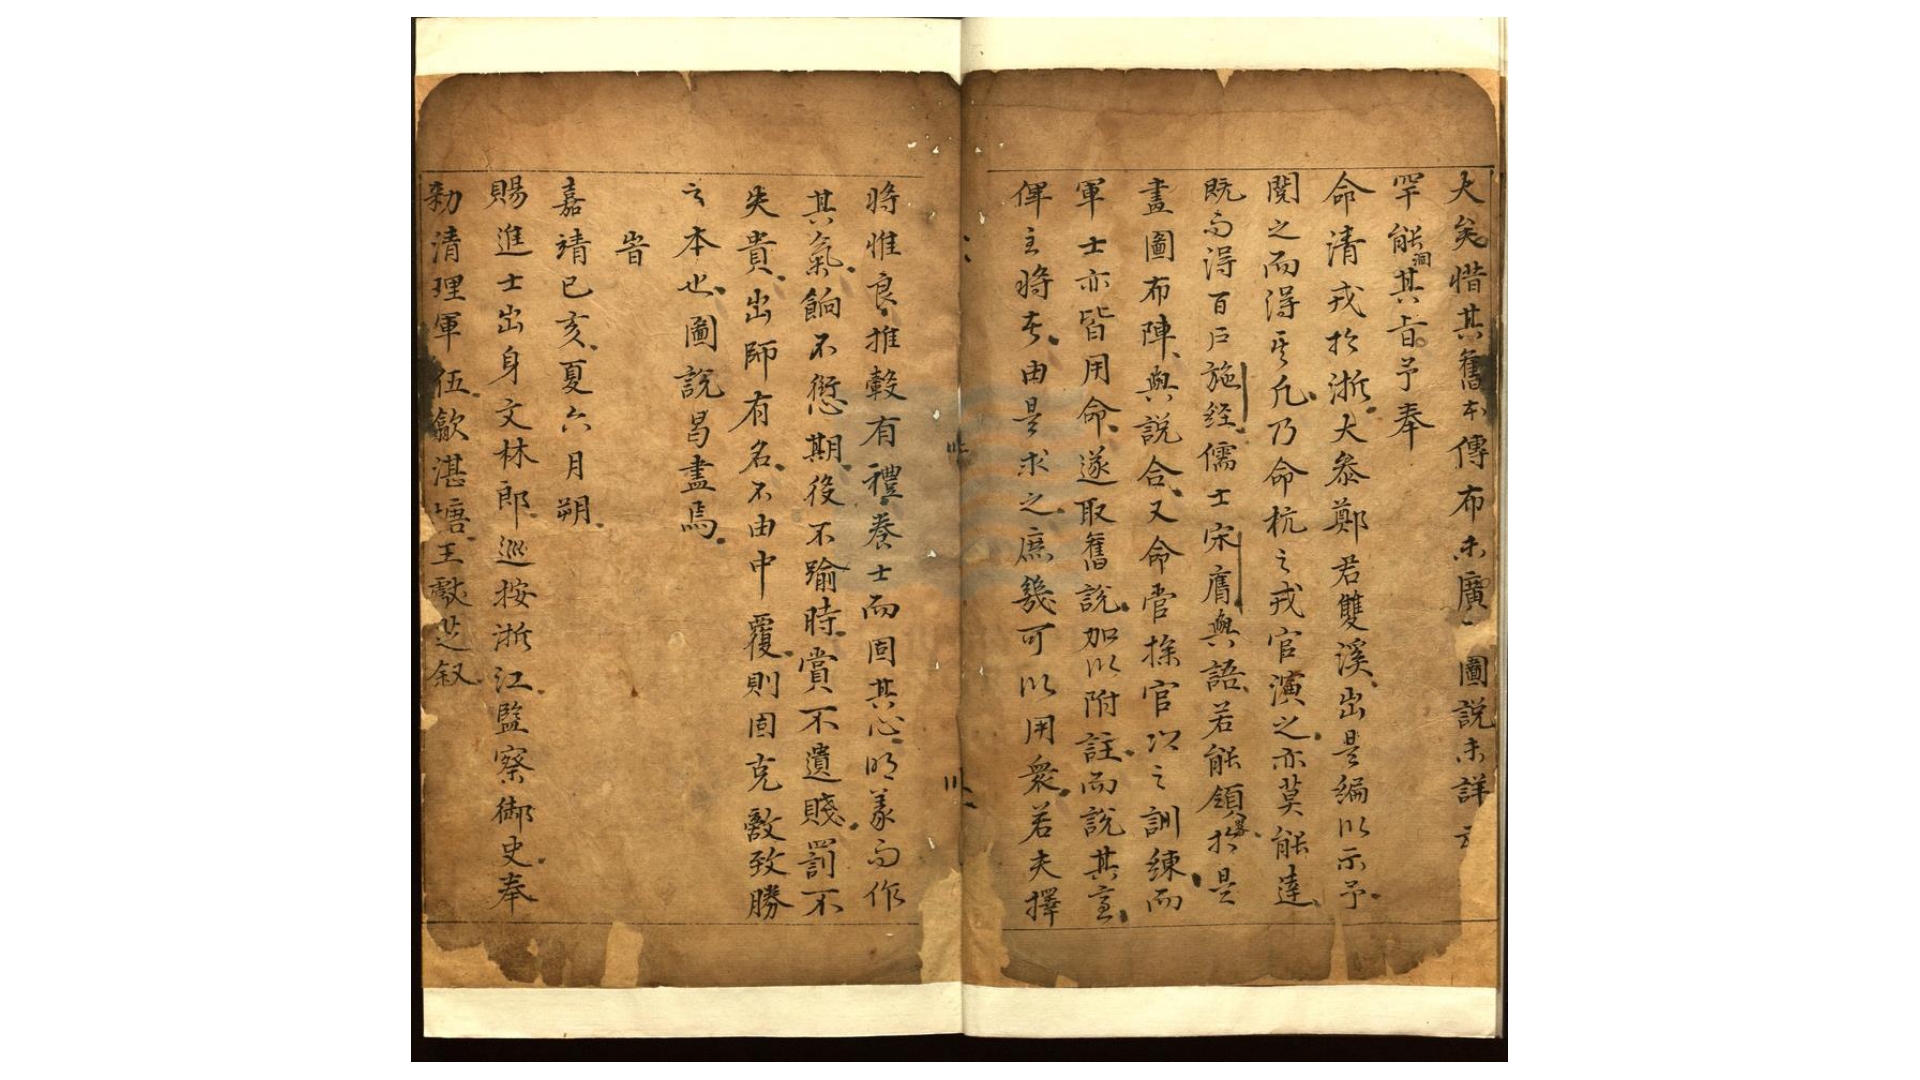 大矣惜其舊本傳布未廣圖說未詳
罕能洞其旨予奉
命清戎於浙大叅鄭君雙溪出是編以示予
閱之而得其凡乃命杭之戎官演之亦莫能達
既而得百戶施經儒士宋膺與語若能領畧於是
畫圖布陣與說合又命管操官以之訓練而
軍士亦皆用命遂取舊說加以附註而說其意
俾主將者由是求之庶幾可以用衆若夫擇
將惟良推轂有禮養士而固其心明義而作
其氣餉不愆期役不踰時賞不遺賤罰不
失貴出師有名不由中覆則固克敵致勝
之本也圖說曷盡焉
旹
嘉靖己亥夏六月朔
賜進士出身文林郎巡按浙江監察御史奉
勑清理軍伍歙湛塘王敍